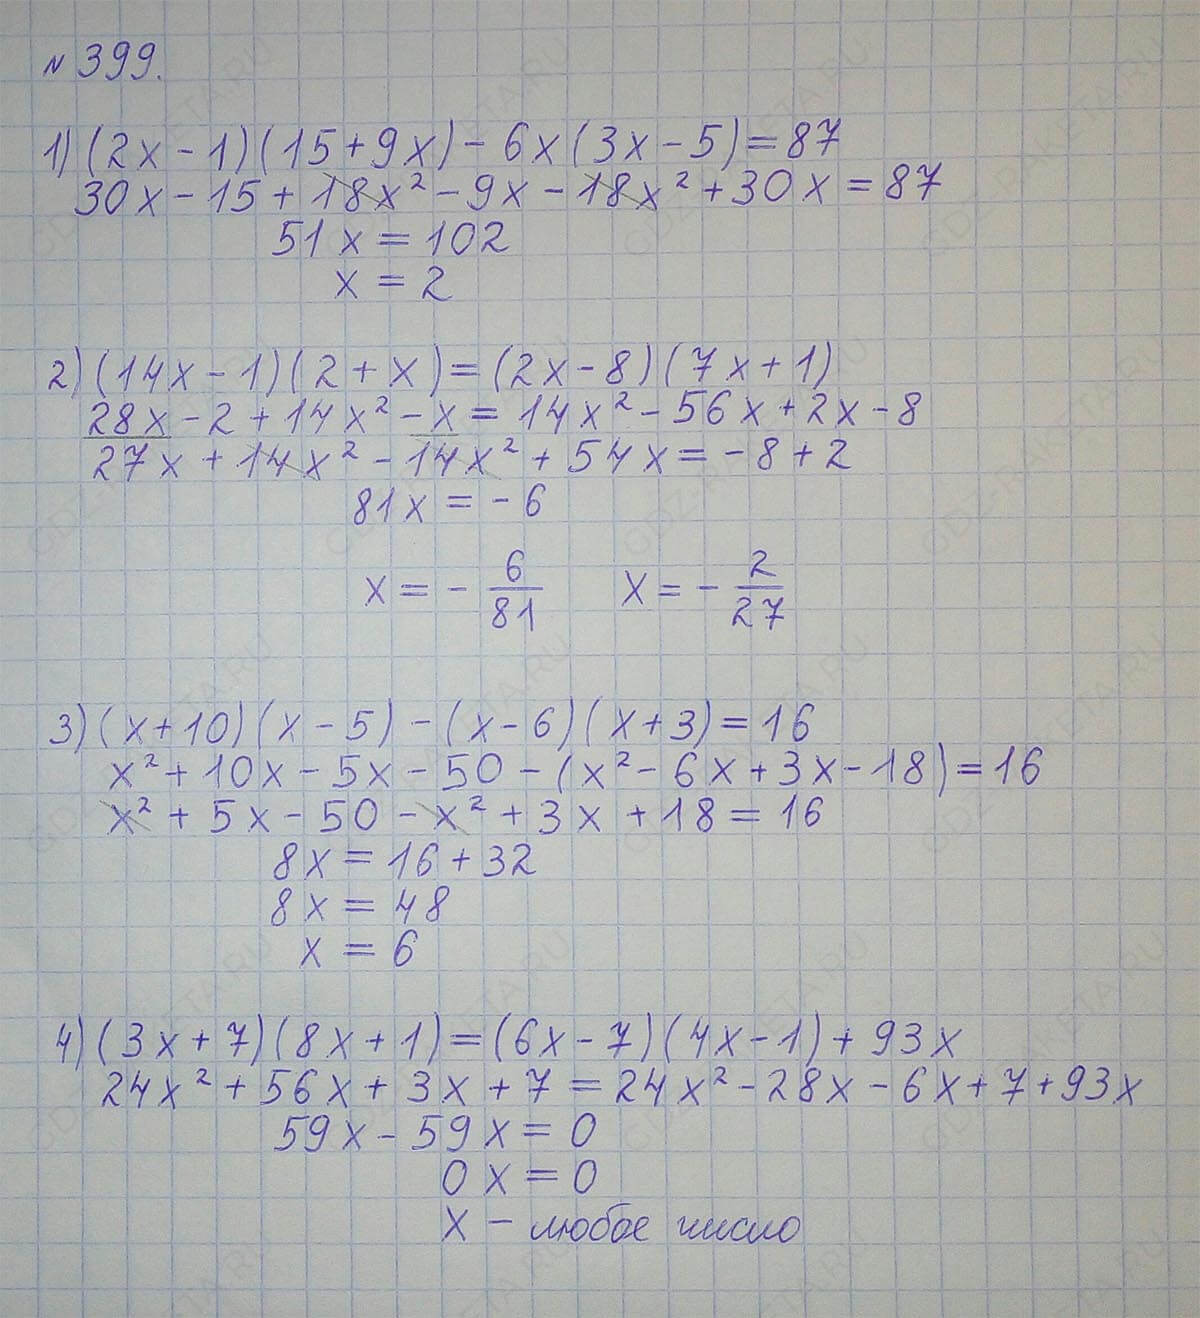 № 399.
1) (2x - 1)(15 + 9x) - 6x(3x - 5) = 87
30x - 15 + 18x² - 9x - 18x² + 30x = 87
51x = 102
x = 2
2) (14x - 1)(2 + x) = (2x - 8)(7x + 1)
28x - 2 + 14x² - x = 14x² - 56x + 2x - 8
27x + 14x² - 14x² + 54x = -8 + 2
81x = -6
x = - 6/81 x = - 2/27
3) (x + 10)(x - 5) - (x - 6)(x + 3) = 16
x² + 10x - 5x - 50 - (x² - 6x + 3x - 18) = 16
x² + 5x - 50 - x² + 3x + 18 = 16
8x = 16 + 32
8x = 48
x = 6
4) (3x + 7)(8x + 1) = (6x - 7)(4x - 1) + 93x
24x² + 56x + 3x + 7 = 24x² - 28x - 6x + 7 + 93x
59x - 59x = 0
0x = 0
x - любое число
GDZ-RAKETA.RU